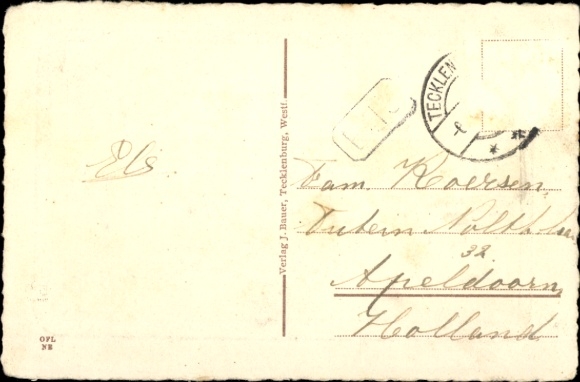 Els
Verlag J. Bauer, Tecklenburg, Westf.
TECKLEN
Fam. Koersen
32
Apeldoorn
Holland
OFL
NE